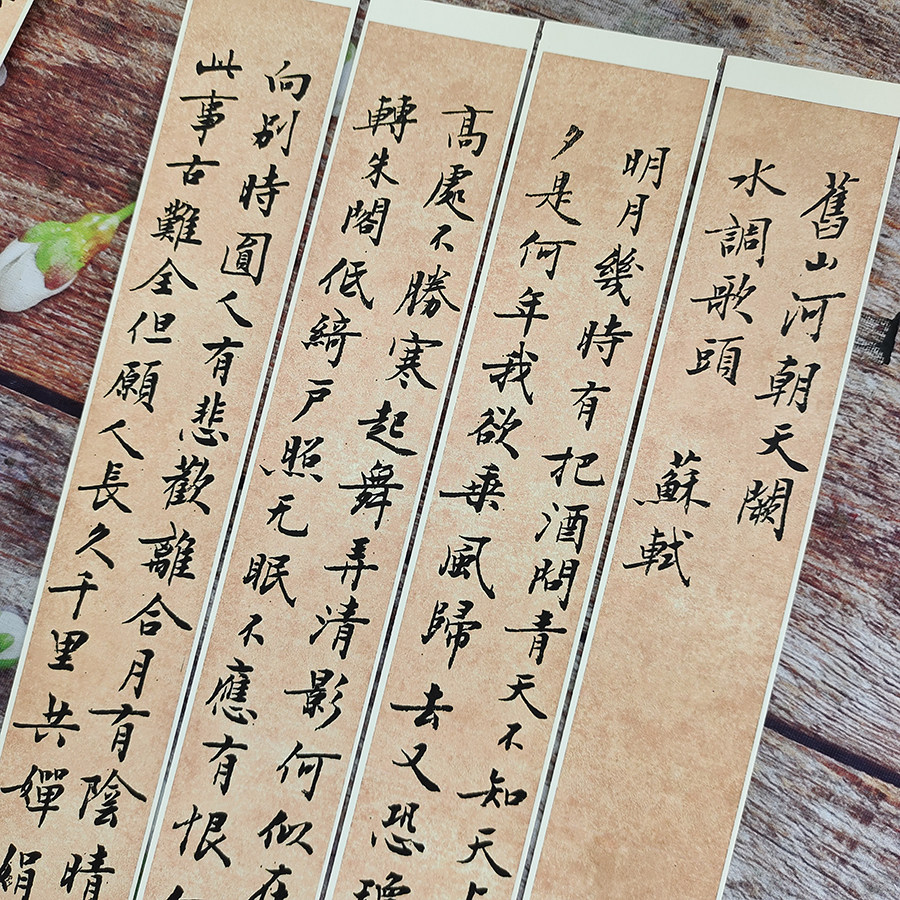 舊山河朝天闕
水調歌頭 蘇軾
明月幾時有把酒問青天不知天
夕是何年我欲乘風歸去又恐
高處不勝寒起舞弄清影何似在
轉朱閣低綺戶照无眠不應有恨
向別時圓人有悲歡離合月有陰晴
此事古難全但願人長久千里共嬋娟